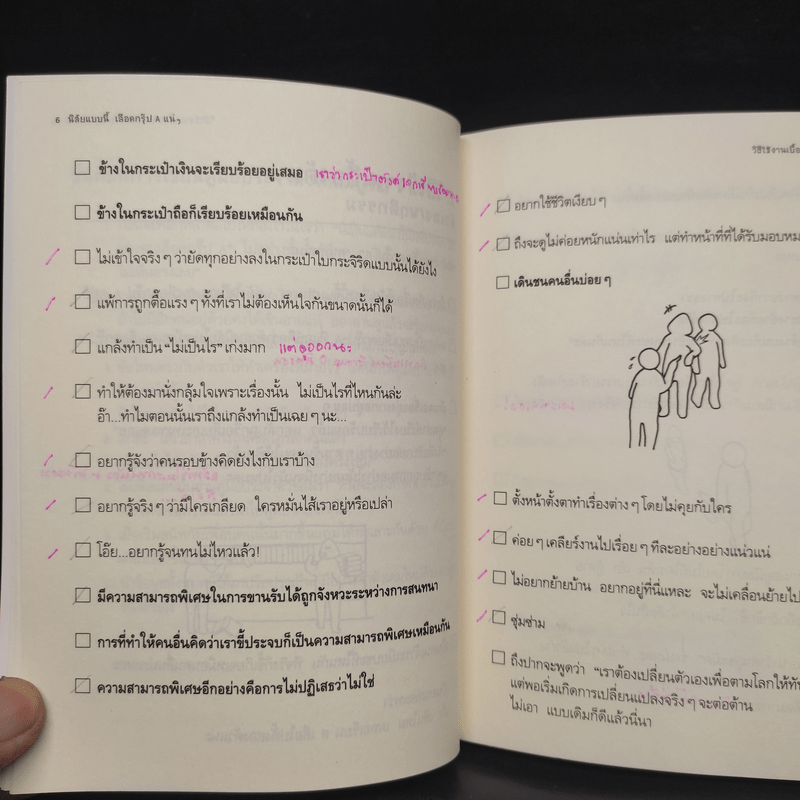 6 นิสัยแบบนี้ เลือดกรุ๊ป A แน่ๆ
ข้างในกระเป๋าเงินจะเรียบร้อยอยู่เสมอ
ข้างในกระเป๋าถือก็เรียบร้อยเหมือนกัน
ไม่เข้าใจจริง ๆ ว่ายัดทุกอย่างลงในกระเป๋าใบกระจิริดแบบนั้นได้ยังไง
แพ้การถูกตื๊อแรง ๆ ทั้งที่เราไม่ต้องเห็นใจกันขนาดนั้นก็ได้
แกล้งทำเป็น “ไม่เป็นไร” เก่งมาก แต่ดูออกนะ
ทำให้ต้องมานั่งกลุ้มใจเพราะเรื่องนั้น ไม่เป็นไรที่ไหนกันล่ะ
อ๊า...ทำไมตอนนั้นเราถึงแกล้งทำเป็นเฉย ๆ นะ...
อยากรู้จังว่าคนรอบข้างคิดยังไงกับเราบ้าง
อยากรู้จริง ๆ ว่ามีใครเกลียด ใครหมั่นไส้เราอยู่หรือเปล่า
โอ๊ย...อยากรู้จนทนไม่ไหวแล้ว!
มีความสามารถพิเศษในการขานรับได้ถูกจังหวะระหว่างการสนทนา
การที่ทำให้คนอื่นคิดว่าเราขี้ประจบก็เป็นความสามารถพิเศษเหมือนกัน
ความสามารถพิเศษอีกอย่างคือการไม่ปฏิเสธว่าไม่ใช่
วิธีใช้งานเบื้อ
อยากใช้ชีวิตเงียบ ๆ
ถึงจะดูไม่ค่อยหนักแน่นเท่าไร แต่ทำหน้าที่ที่ได้รับมอบหม
เดินชนคนอื่นบ่อย ๆ
ตั้งหน้าตั้งตาทำเรื่องต่าง ๆ โดยไม่คุยกับใคร
ค่อย ๆ เคลียร์งานไปเรื่อย ๆ ทีละอย่างอย่างแน่วแน่
ไม่อยากย้ายบ้าน อยากอยู่ที่นี่แหละ จะไม่เคลื่อนย้ายไป
ซุ่มซ่าม
ถึงปากจะพูดว่า “เราต้องเปลี่ยนตัวเองเพื่อตามโลกให้ทัน
แต่พอเริ่มเกิดการเปลี่ยนแปลงจริง ๆ จะต่อต้าน
ไม่เอา แบบเดิมก็ดีแล้วนี่นา